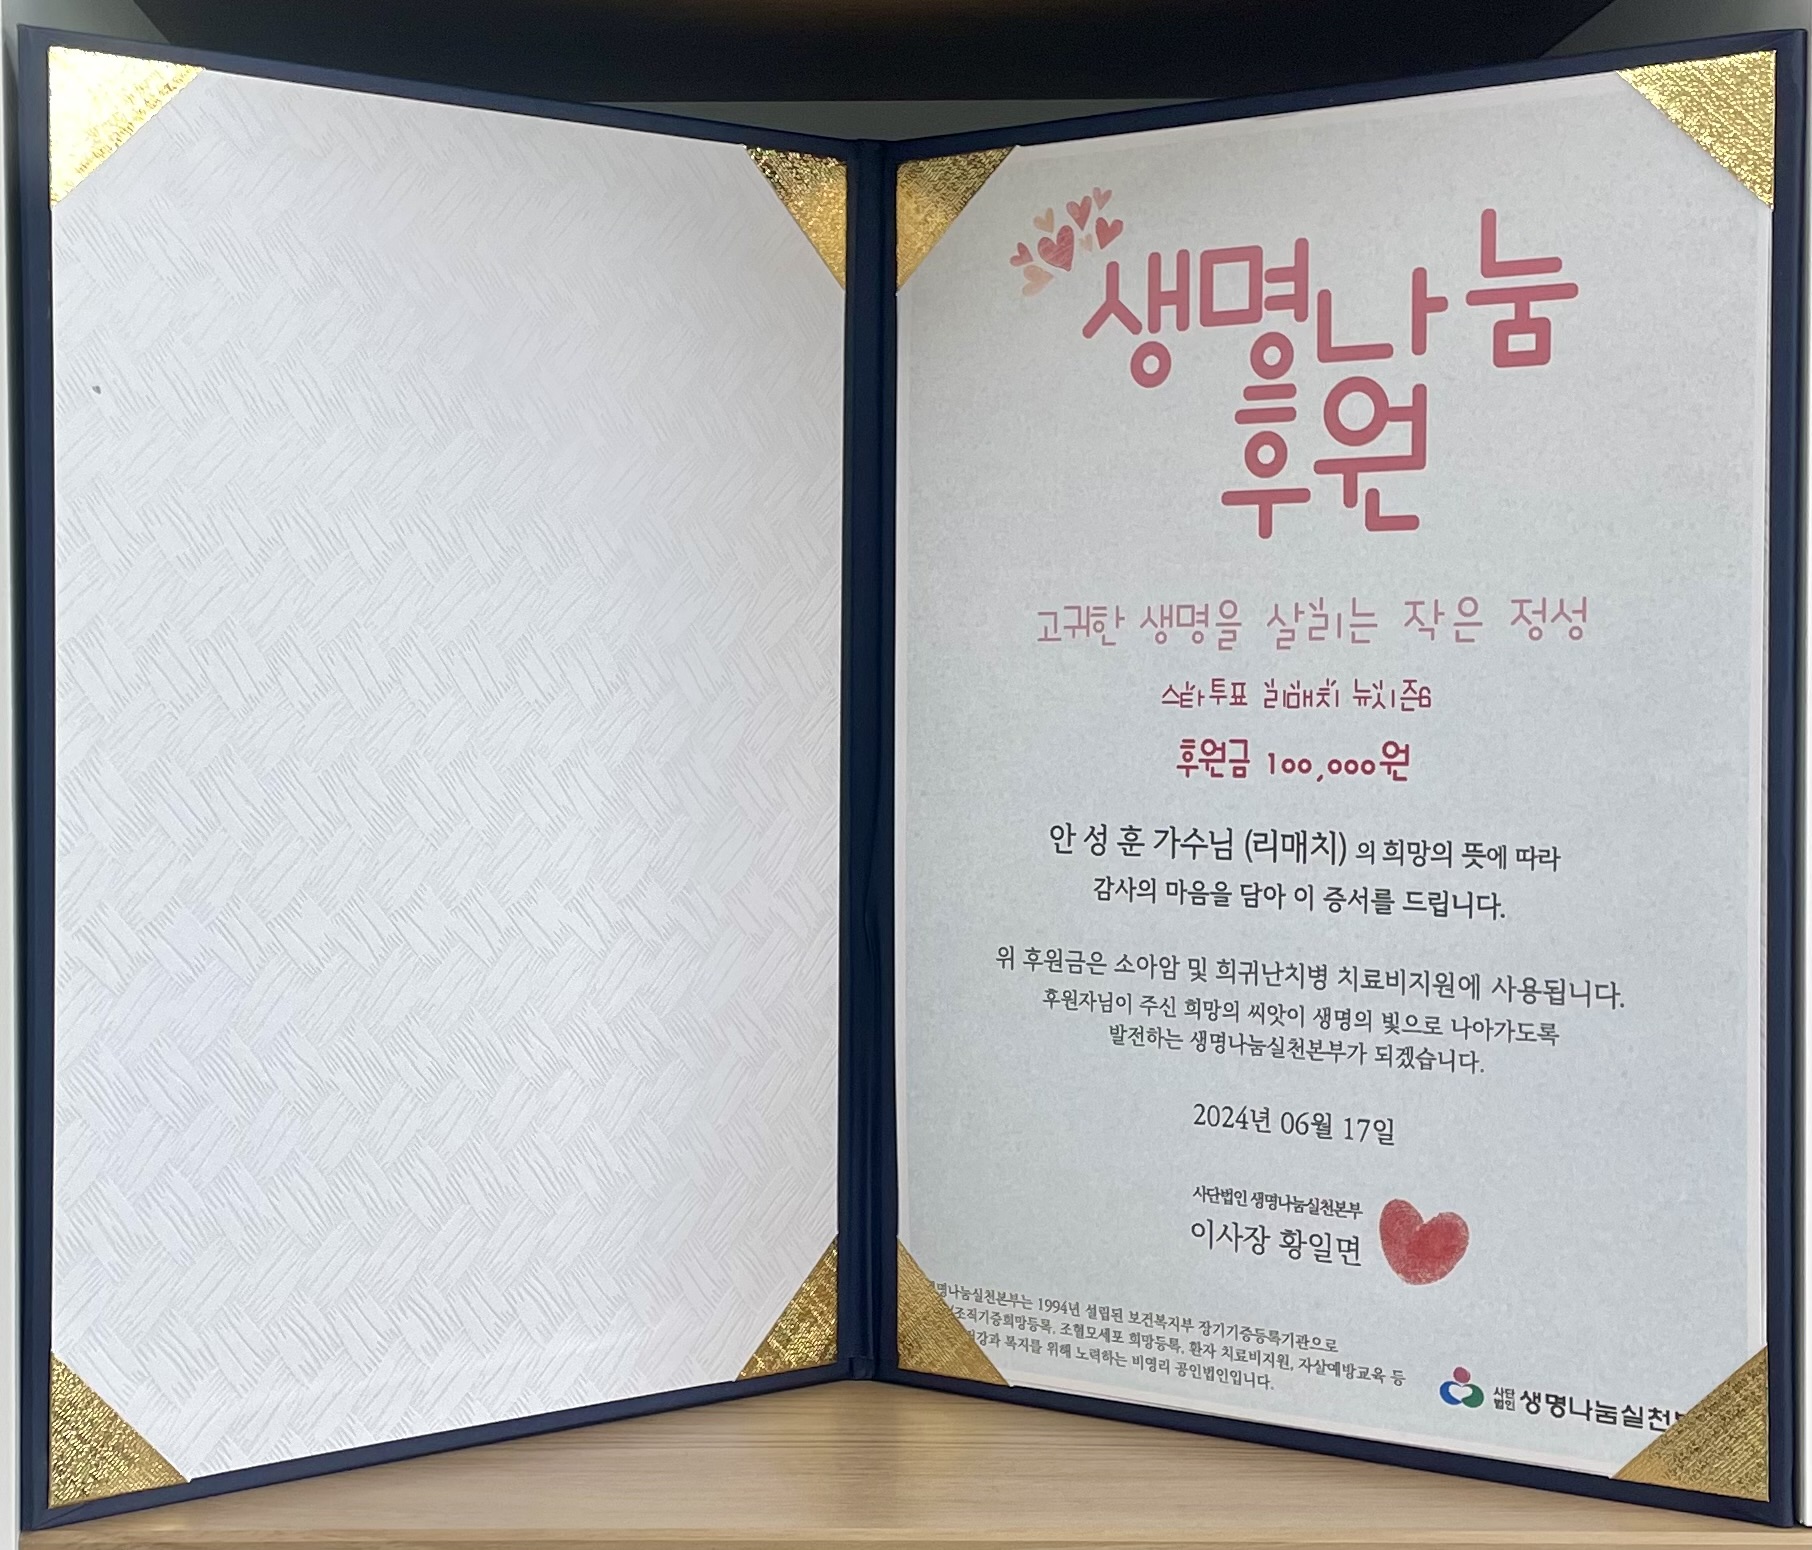 생명나눔
후원
고귀한 생명을 살리는 작은 정성
스타투표 리매치 뉴시즌6
후원금 100,000원
안성훈 가수님 (리매치) 의 희망의 뜻에 따라
감사의 마음을 담아 이 증서를 드립니다.
위 후원금은 소아암 및 희귀난치병 치료비지원에 사용됩니다.
후원자님이 주신 희망의 씨앗이 생명의 빛으로 나아가도록
발전하는 생명나눔실천본부가 되겠습니다.
2024년 06월 17일
사단법인 생명나눔실천본부
이사장 황일면
명나눔실천본부는 1994년 설립된 보건복지부 장기기증등록기관으로
/조직기증희망등록, 조혈모세포 희망등록, 환자 치료비지원, 자살예방교육 등
강과 복지를 위해 노력하는 비영리 공인법인입니다.
사단법인 생명나눔실천